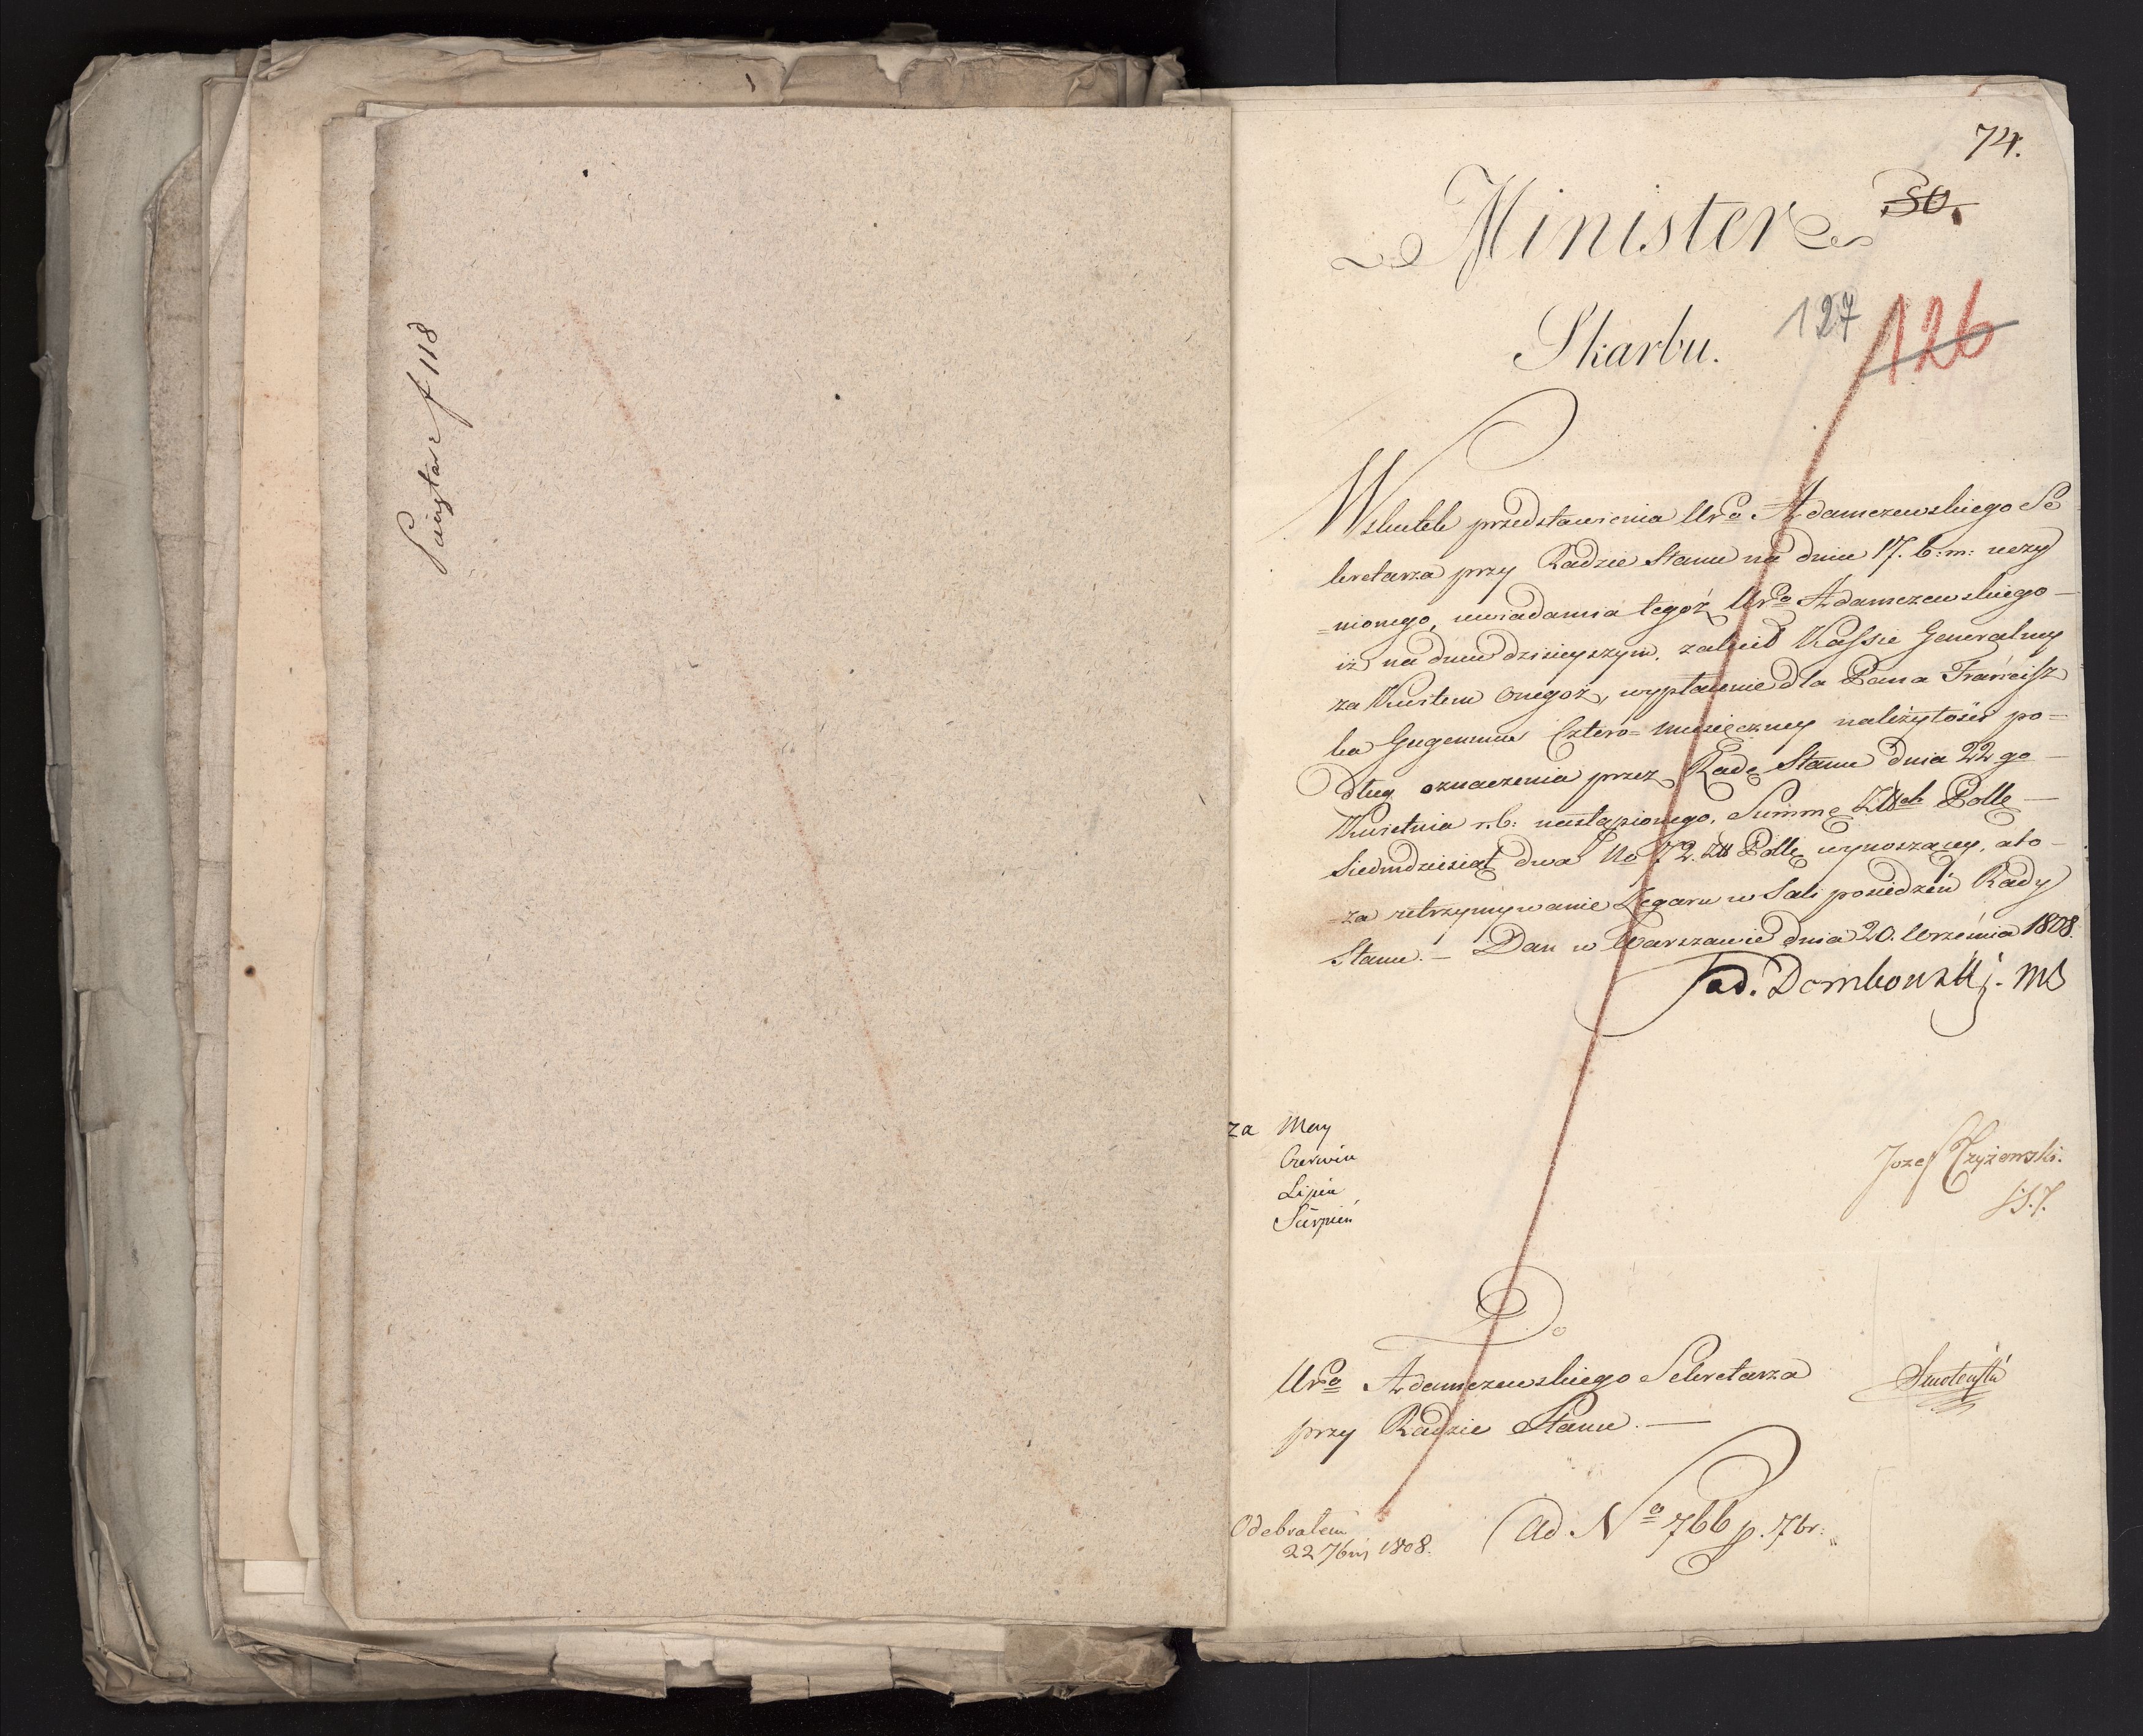 f 118
74.
30.
Minister
127 126
Skarbu.
Wskutek przedstawienia Urgo Adamczewskiego Se
kretarza przy Radzie Stanu na dniu 17. b: m: uczy
=nionego, uwiadamia tegoż Urgo Adamczewskiego —
iż na dniu dzisieyszym, zalecił Kassie Generalney
za Kwitem onegoż, wypłacenie dla Pana Francisz
ka Gugenmus Cztero= miesięczney należytości po=
dług oznaczenia przez Radę Stanu dnia 22 go —
Kwietnia r. b: nastąpionego, Summę Złłch Polls —
Siedmdziesiąt dwa No 72. Złł Polls wynoszącey, ato —
=za utrzymywanie Zegaru w Sali posiedzeń Rady
Stanu. — Dan w Warszawie dnia 20. Września 1808.
Tad. Dembowski. MS
za May
Czerwiec
Lipiec
Sierpień
Jozef Czyżewski.
Do
Urgo Adamczewskiego Sekretarza
przy Radzie Stanu. —
Odebrałem
22 7bris 1808.
Ad No 766 p. 7br: